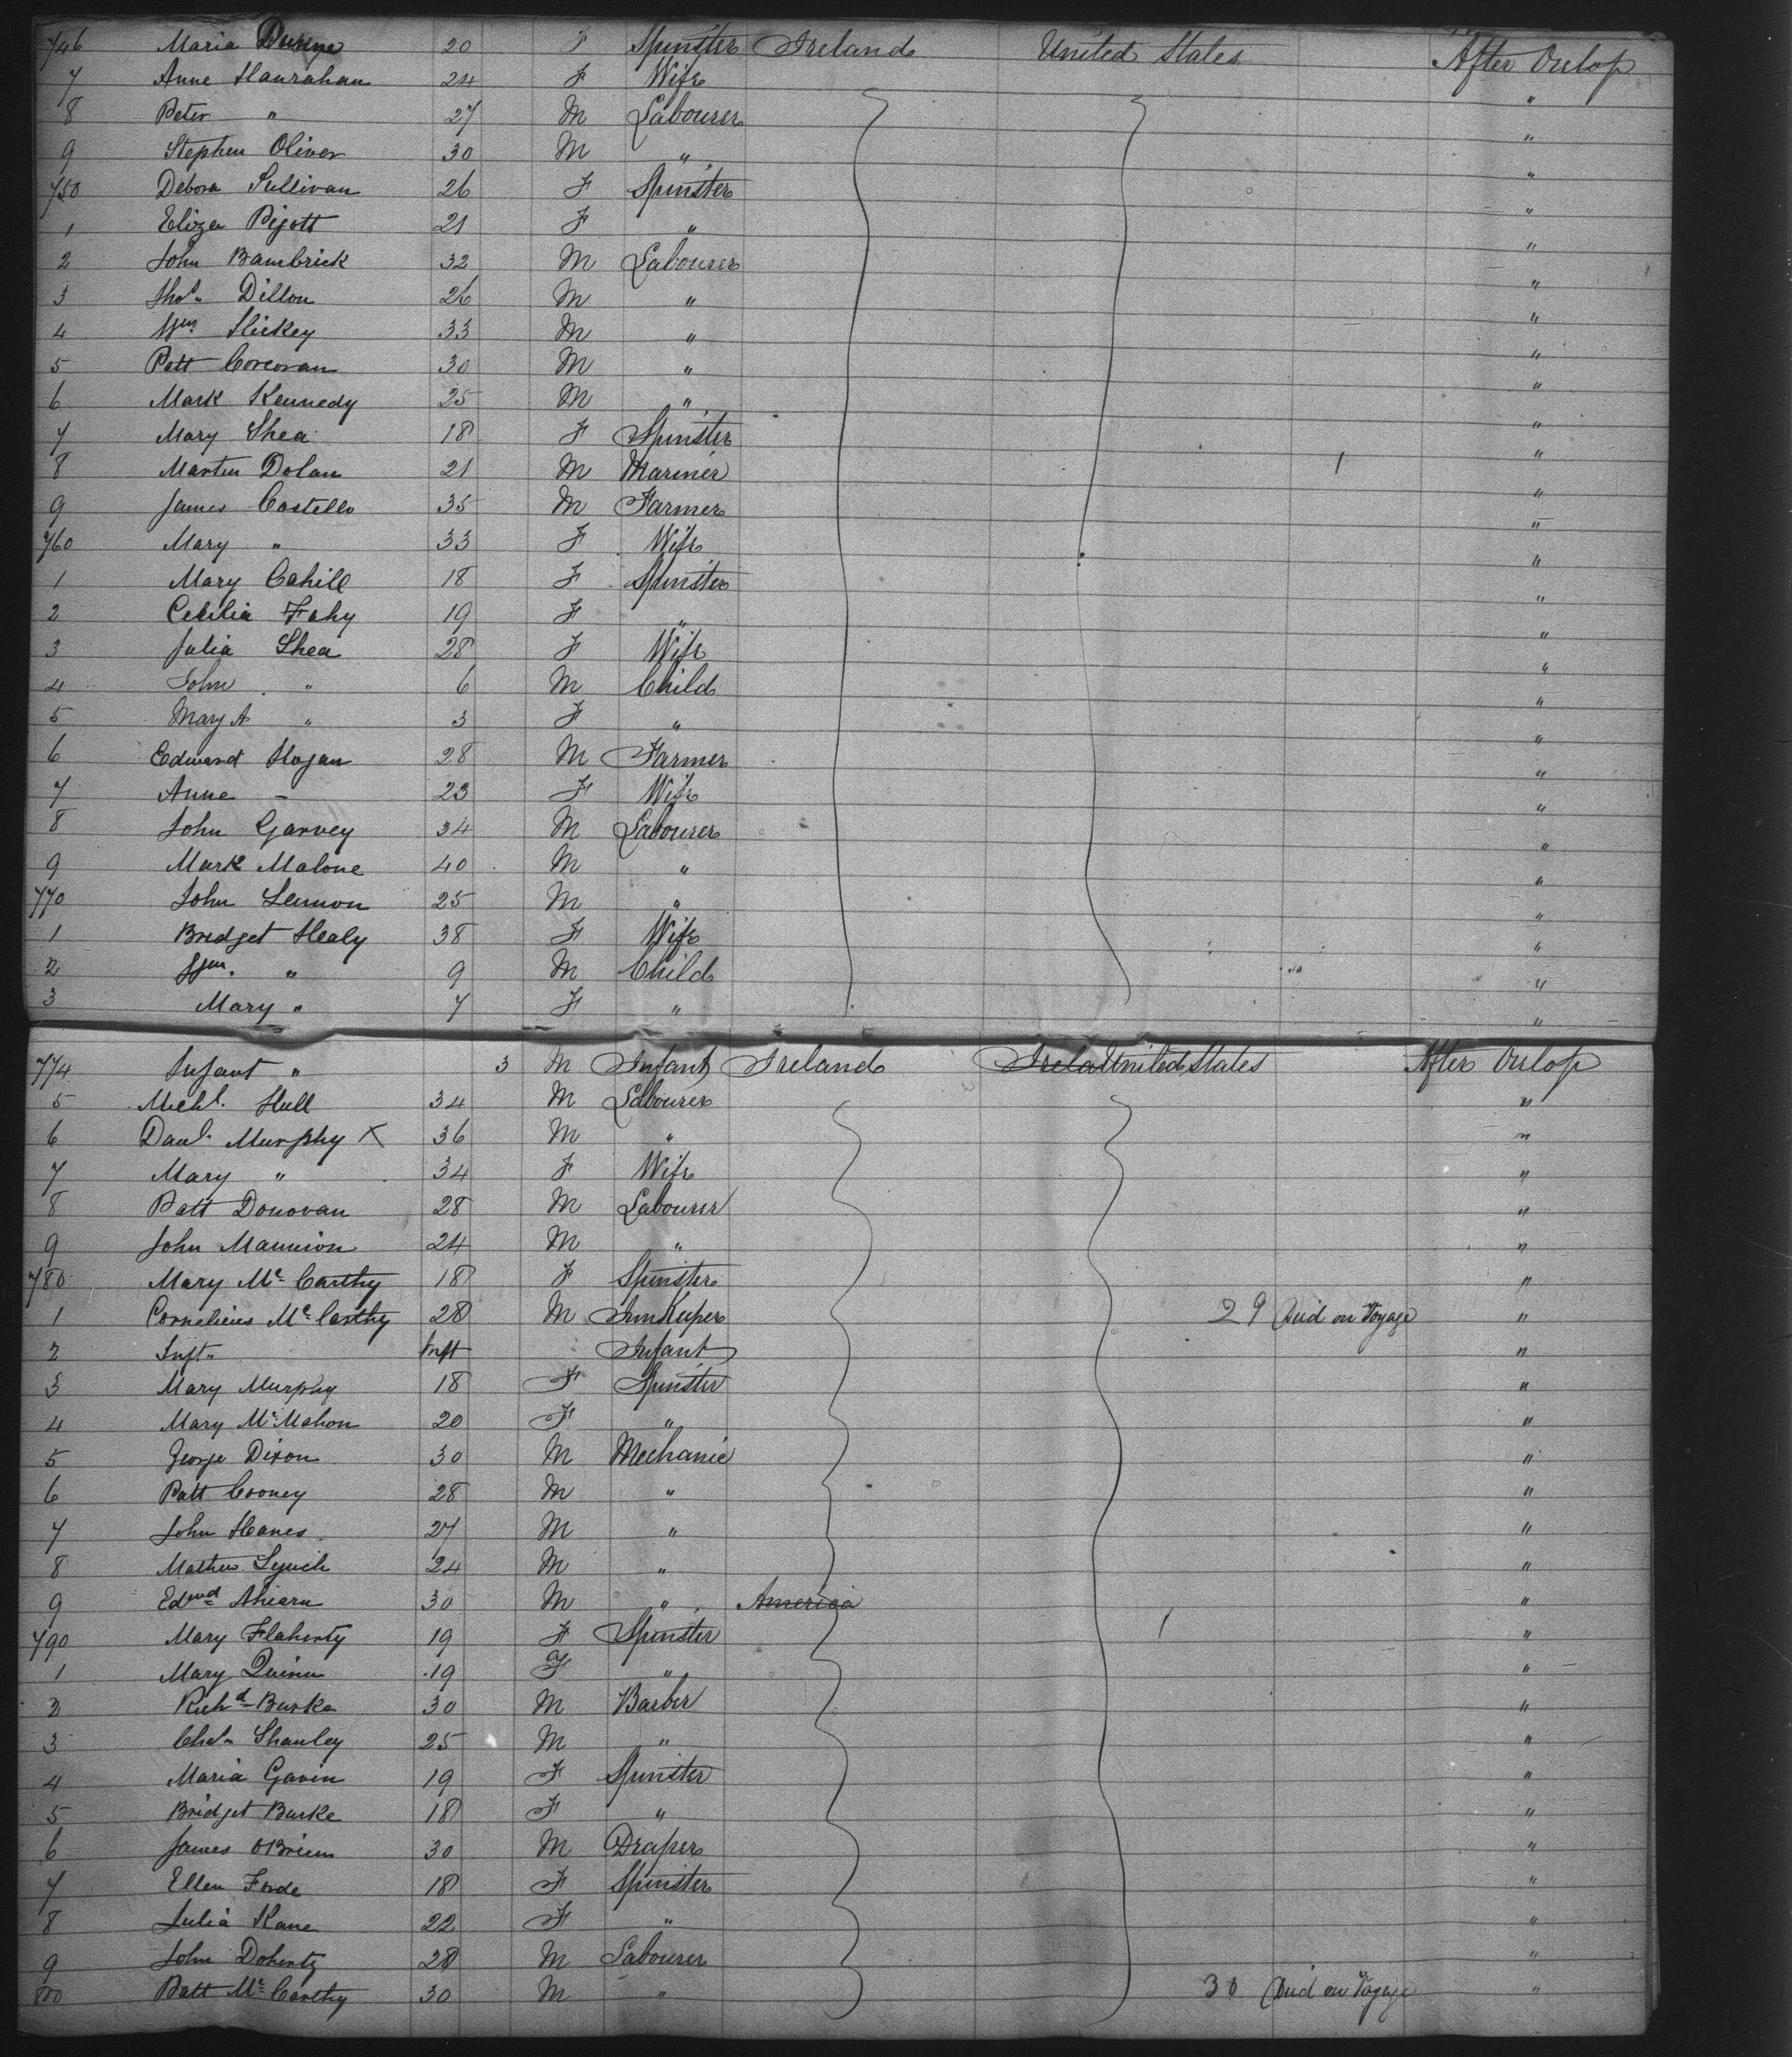 746 Maria Dunne 20 F Spinster Ireland United States After Orlop
7 Anne Hanrahan 24 F Wife "
8 Peter " 27 M Labourer "
9 Stephen Oliver 30 M " "
750 Debora Sullivan 26 F Spinster "
1 Eliza Pigott 21 F " "
2 John Bambrick 32 M Labourer "
3 Thos. Dillon 26 M " "
4 Wm. Hickey 33 M " "
5 Patt Corcoran 30 M " "
6 Mark Kennedy 25 M " "
7 Mary Shea 18 F Spinster "
8 Martin Dolan 21 M Mariner "
9 James Costello 35 M Farmer "
760 Mary " 33 F Wife "
1 Mary Cahill 18 F Spinster "
2 Cecilia Fahy 19 F " "
3 Julia Shea 28 F Wife "
4 John " 6 M Child "
5 Mary A " 3 F " "
6 Edward Hogan 28 M Farmer "
7 Anne - 23 F Wife "
8 John Garvey 34 M Labourer "
9 Mark Malone 40 M " "
770 John Lennon 25 M " "
1 Bridget Healy 38 F Wife "
2 Wm. " 9 M Child "
3 Mary " 7 F " "
774 Infant " 3 M Infant Ireland Irela United States After Orlop
5 Michl. Hull 34 M Labourer "
6 Danl. Murphy X 36 M " "
7 Mary " 34 F Wife "
8 Patt Donovan 28 M Labourer "
9 John Mannion 24 M " "
780 Mary McCarthy 18 F Spinster "
1 Cornelius McCarthy 28 M Innkeeper 29 Died on Voyage "
2 Inft. Inft Infant "
3 Mary Murphy 18 F Spinster "
4 Mary McMahon 20 F " "
5 George Dixon 30 M Mechanic "
6 Patt Cooney 28 M " "
7 John Hanes 27 M " "
8 Mathew Lynch 24 M " "
9 Edwd Ahearn 30 M " America "
790 Mary Flaherty 19 F Spinster "
1 Mary Quinn 19 F " "
2 Richd Burke 30 M Barber "
3 Chas. Shanley 25 M " "
4 Maria Gavin 19 F Spinster "
5 Bridget Burke 18 F " "
6 James OBrien 30 M Draper "
7 Ellen Forde 18 F Spinster "
8 Julia Kane 22 F " "
9 John Doherty 28 M Labourer "
800 Patt McCarthy 30 M " 30 Died on Voyage "